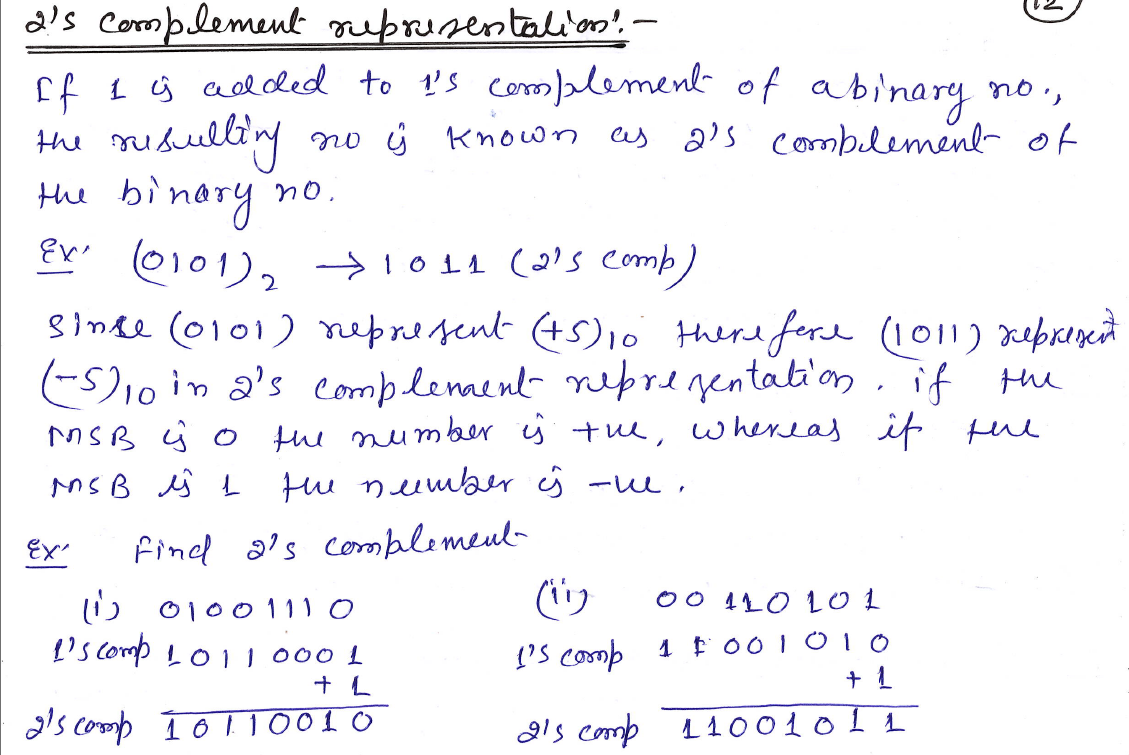 12
2's complement representation:-
If 1 is added to 1's complement of a binary no.,
the resulting no is known as 2's complement of
the binary no.
Ex. (0101)₂ → 1011 (2's comp)
Since (0101) represent (+5)₁₀ therefore (1011) represent
(-5)₁₀ in 2's complement representation. if the
MSB is 0 the number is +ve, whereas if the
MSB is 1 the number is -ve.
Ex. Find 2's complement
(i) 01001110 (ii) 00110101
1's comp 10110001 1's comp 11001010
+ 1 + 1
2's comp 10110010 2's comp 11001011